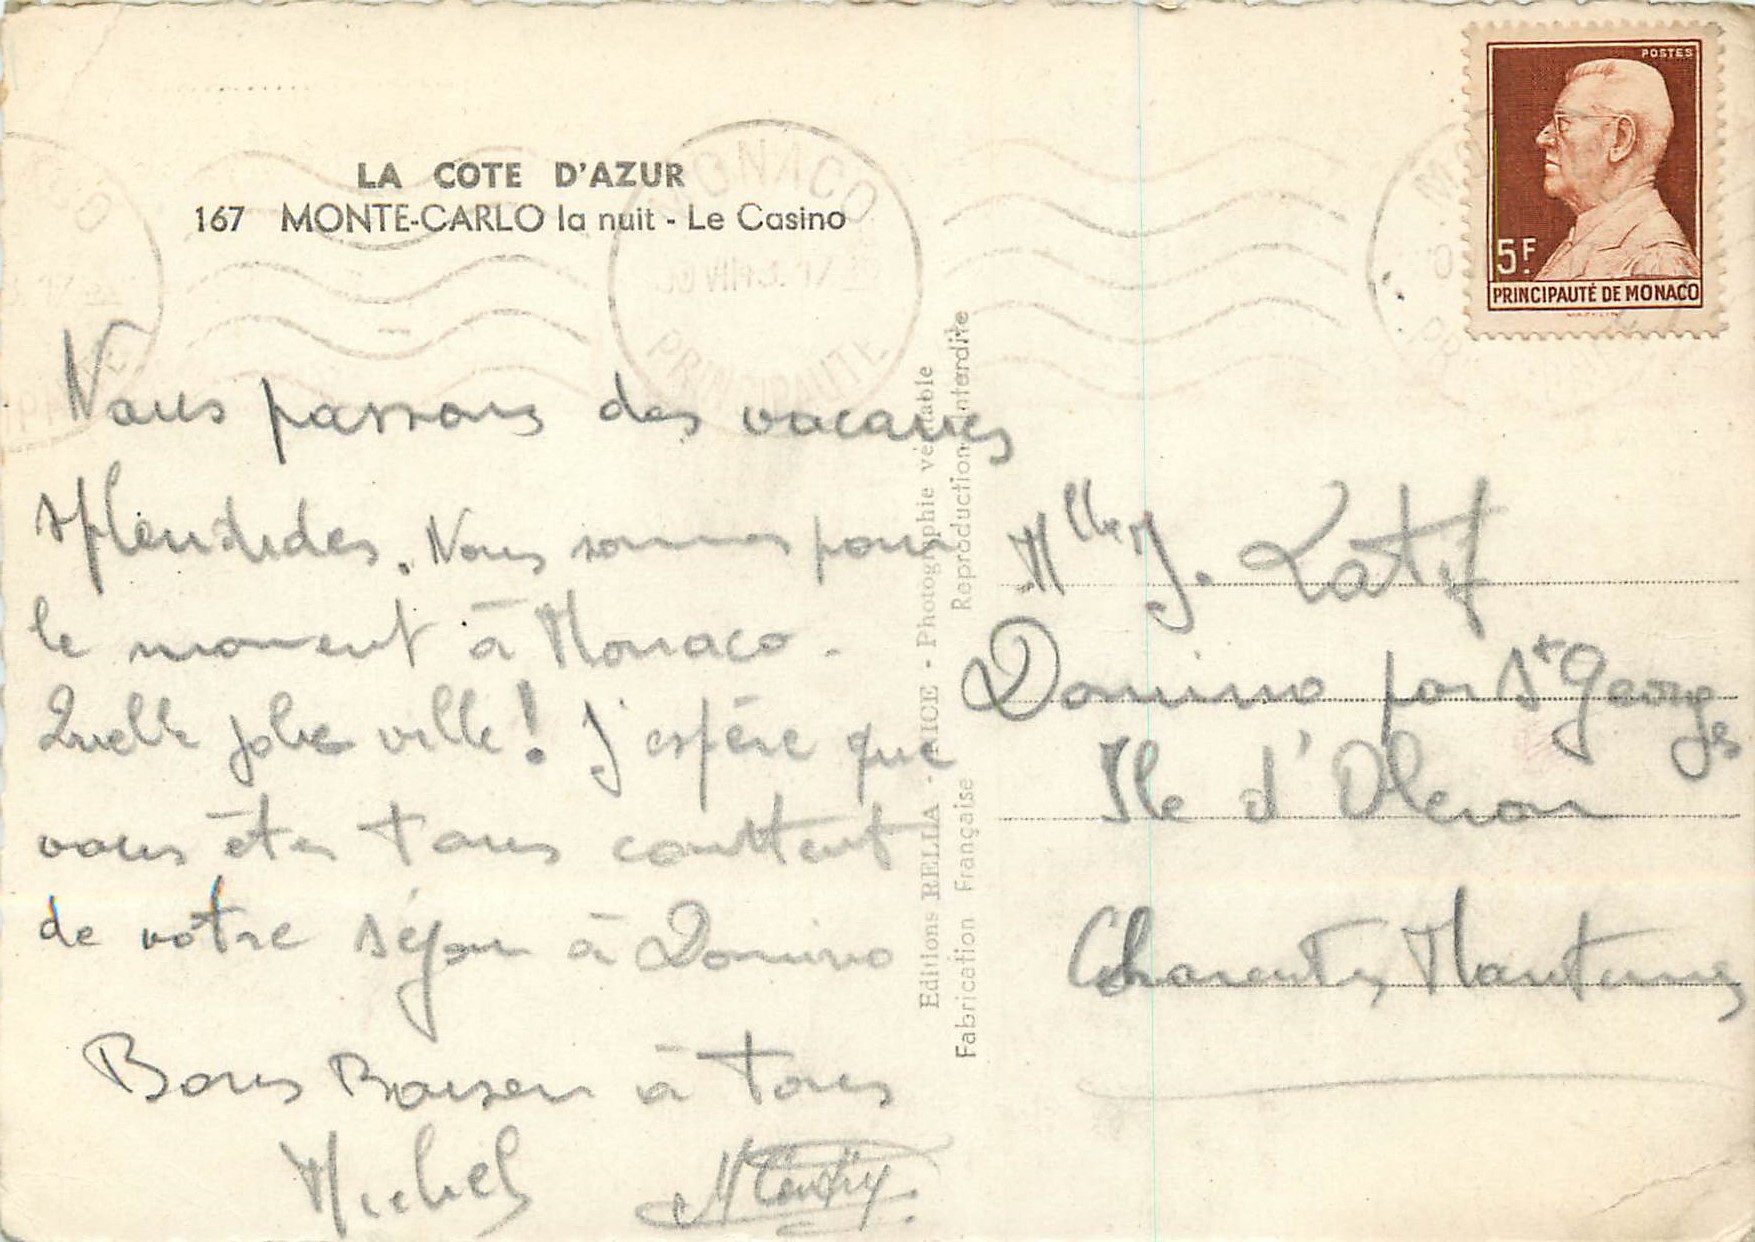 LA COTE D'AZUR
167 MONTE-CARLO la nuit - Le Casino
MONACO
PRINCIPAUTE
POSTES
5F.
PRINCIPAUTÉ DE MONACO
Nous passons des vacances
splendides. Nous sommes pour
le moment à Monaco.
Quelle jolie ville! J'espère que
vous êtes tous conttent
de votre séjour à Domino
Bons Baisers à tous
Michel
Editions RELLA - NICE - Photographie véritable
Fabrication Française Reproduction Interdite
Mlle J. Latif
Domino par St Georges
Ile d'Oleron
Charentes Maritimes